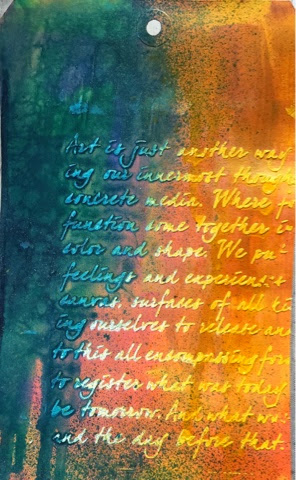 Art is just another way
ing our innermost though
concrete media. Where fo
function come together i
color and shape. We pu
feelings and experiences
canvas, surfaces of all ki
ing ourselves to release an
to this all encompassing for
to register what was today
be tomorrow. And what wa
and the day before that.